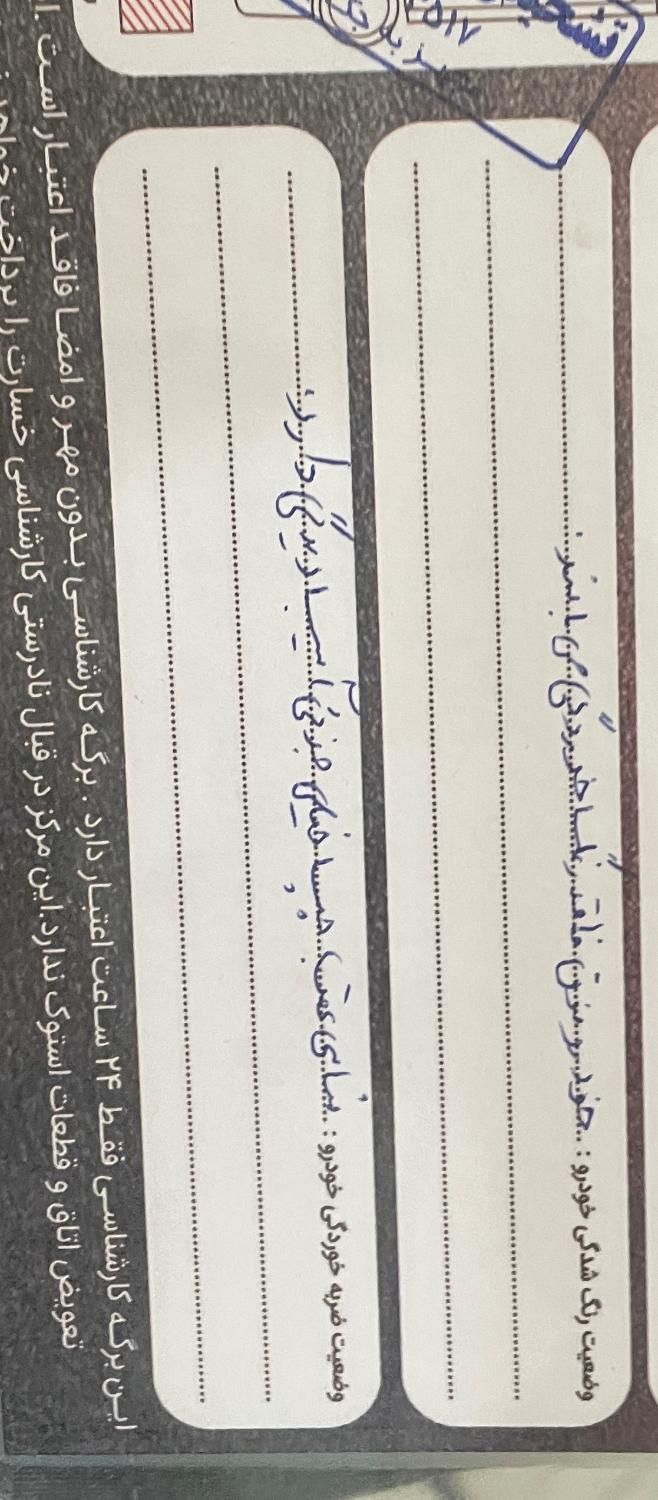 وضعیت رنگ شدگی خودرو : خودرو فوق فاقد رنگ و خوردگی می باشد.
وضعیت ضربه خوردگی خودرو : شاسی عقب چپ خیلی جزئی آسیب دیدگی دارد.
این برگه کارشناسی فقط ۲۴ ساعت اعتبار دارد . برگه کارشناسی بدون مهر و امضا فاقد اعتبار است .
تعویض اتاق و قطعات استوک ندارد.این مرکز در قبال نادرستی کارشناسی خسارت را پرداخت